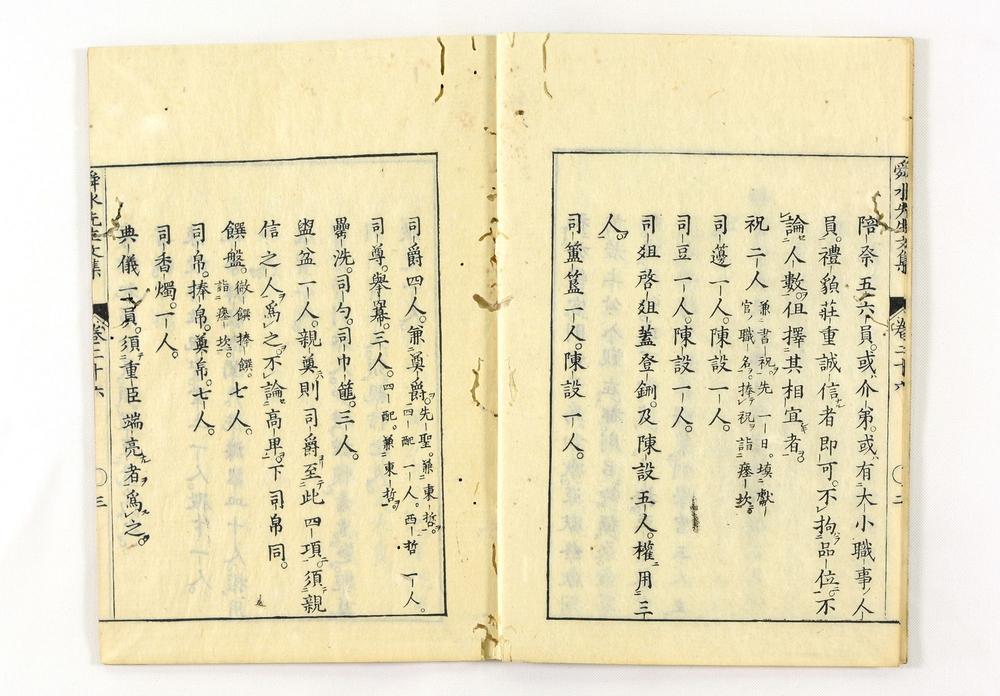 舜水先生文集
卷二十六
二
陪祭五六員。或介弟。或有大小職事人
員。禮貌莊重誠信者即可。不拘品位。不
論人數。但擇其相宜者。
祝二人
兼書祝。先一日。填獻
官職名。捧祝詣瘞坎。
司籩一人。陳設一人。
司豆一人。陳設一人。
司俎啓俎蓋登鉶。及陳設五人。權用三
人。
司簠簋二人。陳設一人。
司爵四人。兼奠爵。
先聖。兼東哲。
四配一人。西哲一人。
司尊。舉冪。二人。
四配。兼東哲。
罍洗。司勺。司巾篚。三人。
盥盆一人。親奠則司爵至此四項。須親
信之人爲之。不論高卑。下司帛同。
饌盤。
徹饌捧饌。
詣瘞坎。
七人。
司帛。捧帛。奠帛。七人。
司香燭。一人。
典儀一員。須重臣端亮者爲之。
舜水先生文集
卷二十六
三